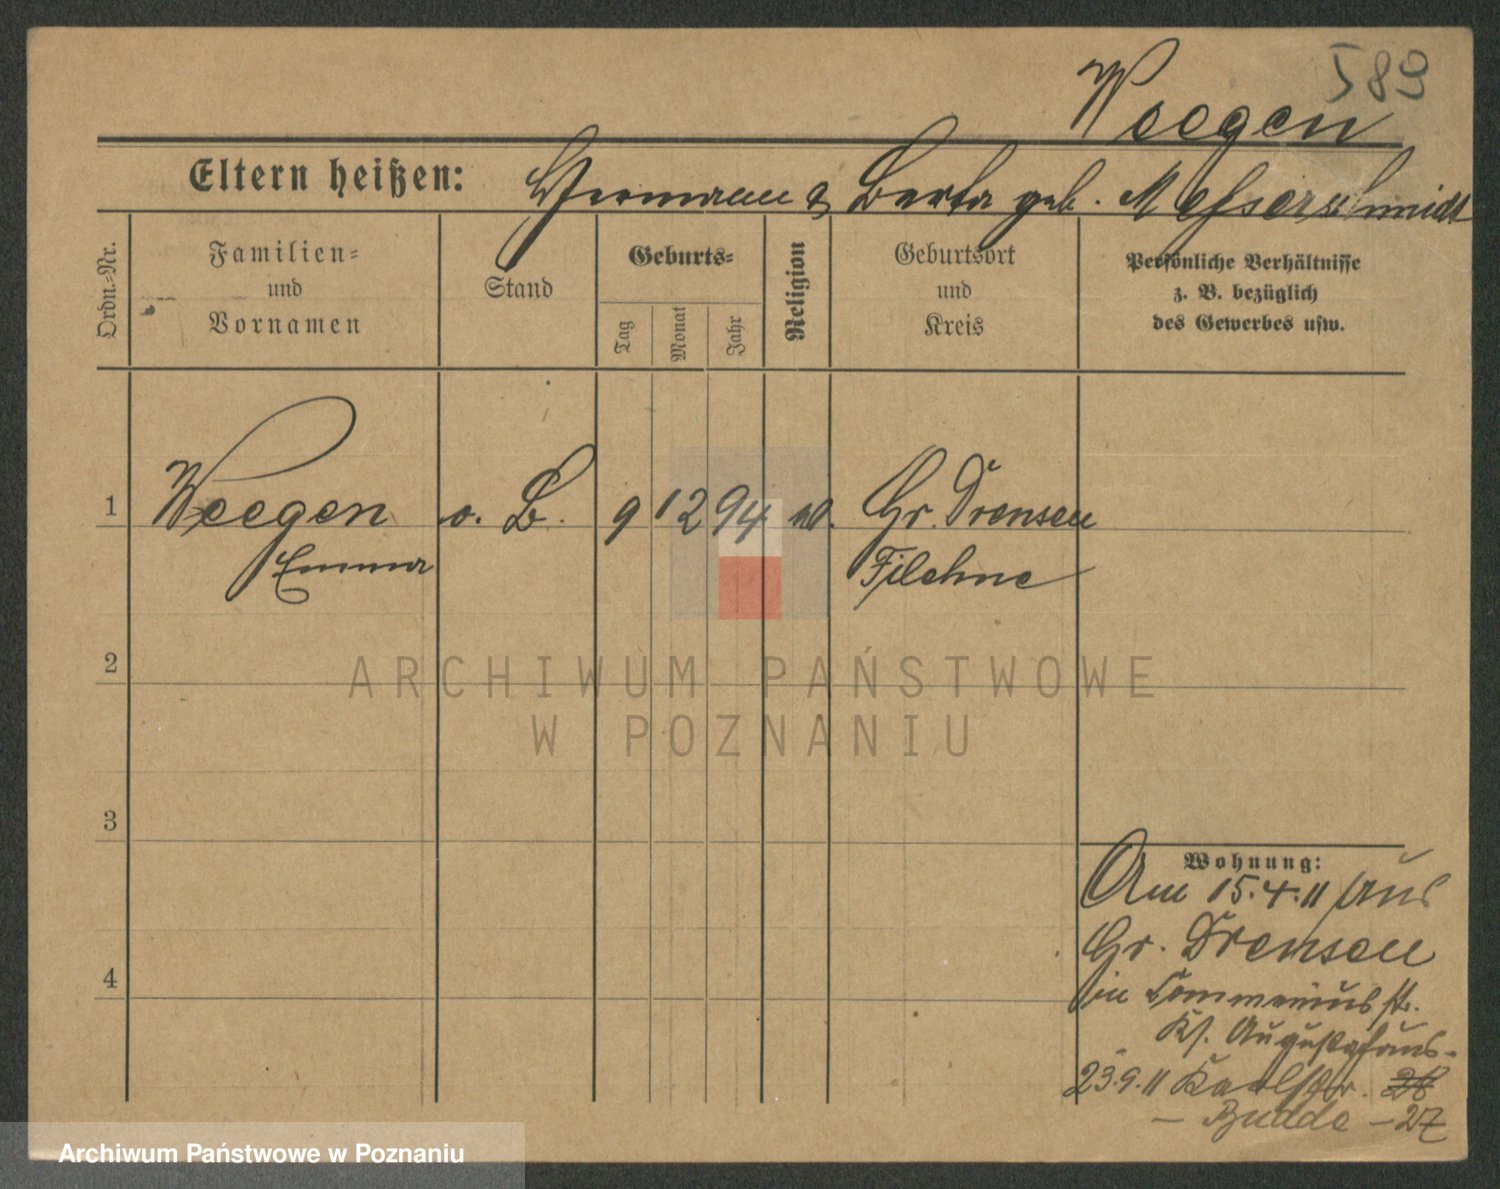 589
Weegen
Eltern heißen: Hermann & Berta geb. Messerschmidt
Ordn.-Nr.
Familien-
und
Vornamen
Stand
Geburts-
Tag
Monat
Jahr
Religion
Geburtsort
und
Kreis
Persönliche Verhältnisse
z. B. bezüglich
des Gewerbes usw.
1 Weegen o. B. 9 12 94 Gr. Drensen
Emma Filehne
2
ARCHIWUM PAŃSTWOWE
W POZNANIU
3
Wohnung:
Am 15.4.11 aus
Gr. Drensen
4
in Commeniusstr.
Ks. Augustahaus-
23.9.11 Karlstr. 28
— Budde — 27
Archiwum Państwowe w Poznaniu